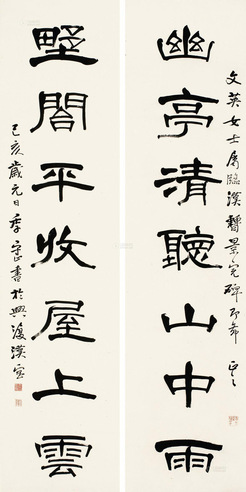 文英女士屬臨漢曹景完碑即希正之
幽亭清聽山中雨
墅閣平收屋上雲
己亥歲元日書於興復漢室